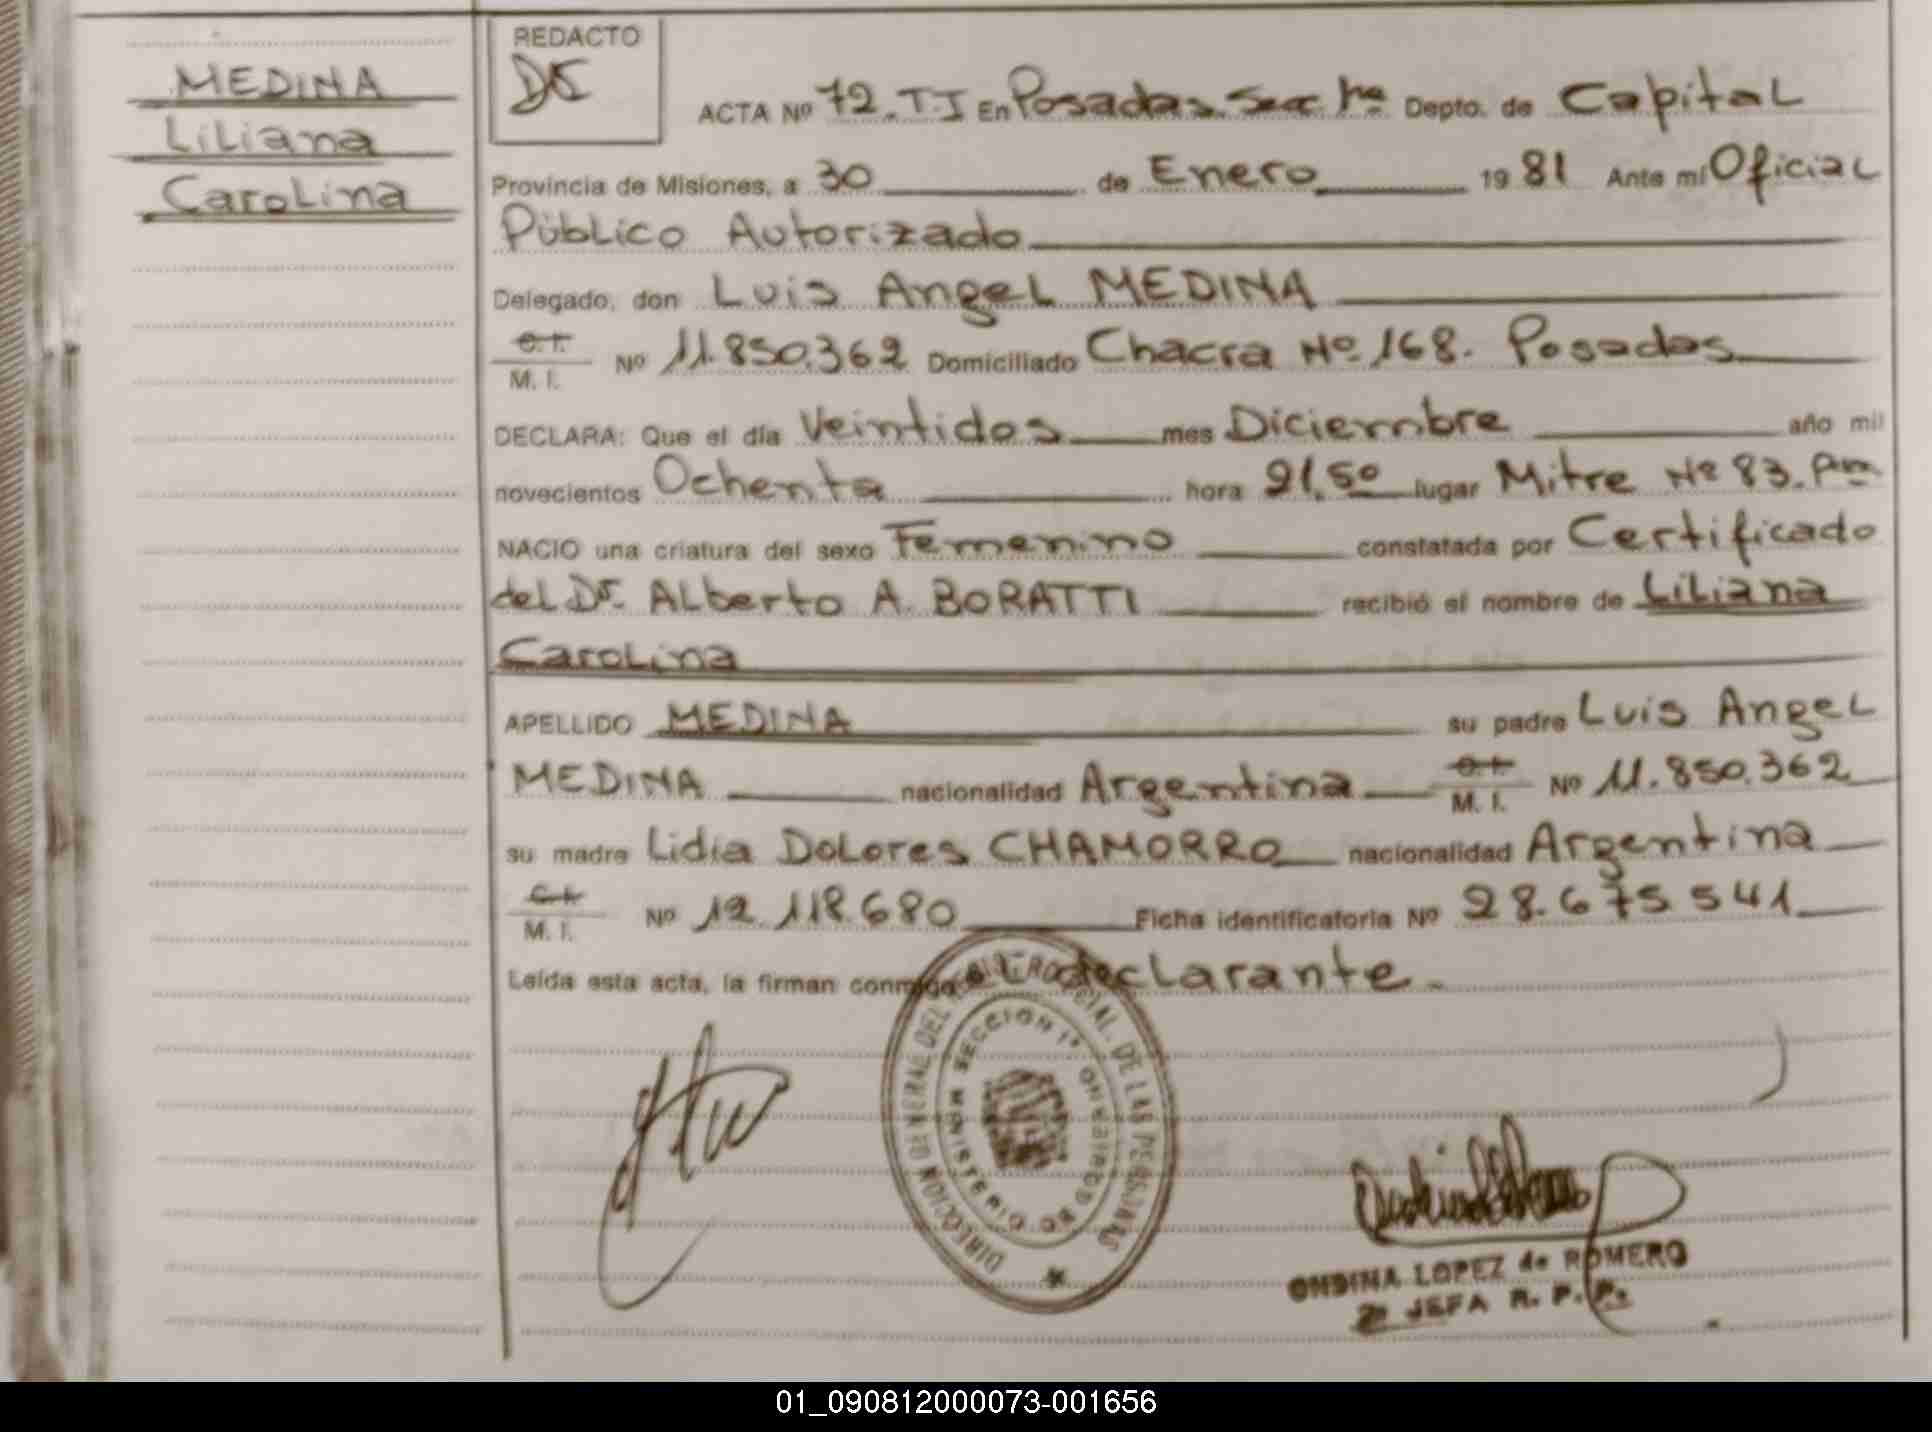 MEDINA
Liliana
Carolina
REDACTO
DS
ACTA Nº 72. T.I En Posadas. Sec 1ª Depto. de Capital
Provincia de Misiones, a 30 de Enero 1981 Ante mi Oficial
Público Autorizado
Delegado, don Luis Angel MEDINA
C. I.
M. I. Nº 11.850.362 Domiciliado Chacra Nº 168. Posadas
DECLARA: Que el día Veintidos mes Diciembre año mil
novecientos Ochenta hora 21.50 lugar Mitre Nº 83. Pm
NACIO una criatura del sexo Femenino constatada por Certificado
del Dr. Alberto A. BORATTI recibió el nombre de Liliana
Carolina
APELLIDO MEDINA su padre Luis Angel
MEDINA nacionalidad Argentina C. I. M. I. Nº 11.850.362
su madre Lidia Dolores CHAMORRO nacionalidad Argentina
C. I.
M. I. Nº 12.118.680 Ficha identificatoria Nº 28.675.541
Leída esta acta, la firman conmigo el declarante.
DIRECCION GENERAL DEL REGISTRO PROVINCIAL DE LAS PERSONAS
SECCION 1ª
ONDINA LOPEZ de ROMERO
2ª JEFA R. P. P.
01_090812000073-001656